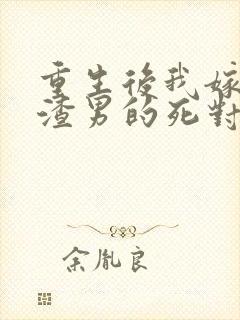 重生後我嫁
渣男的死對
余胤良